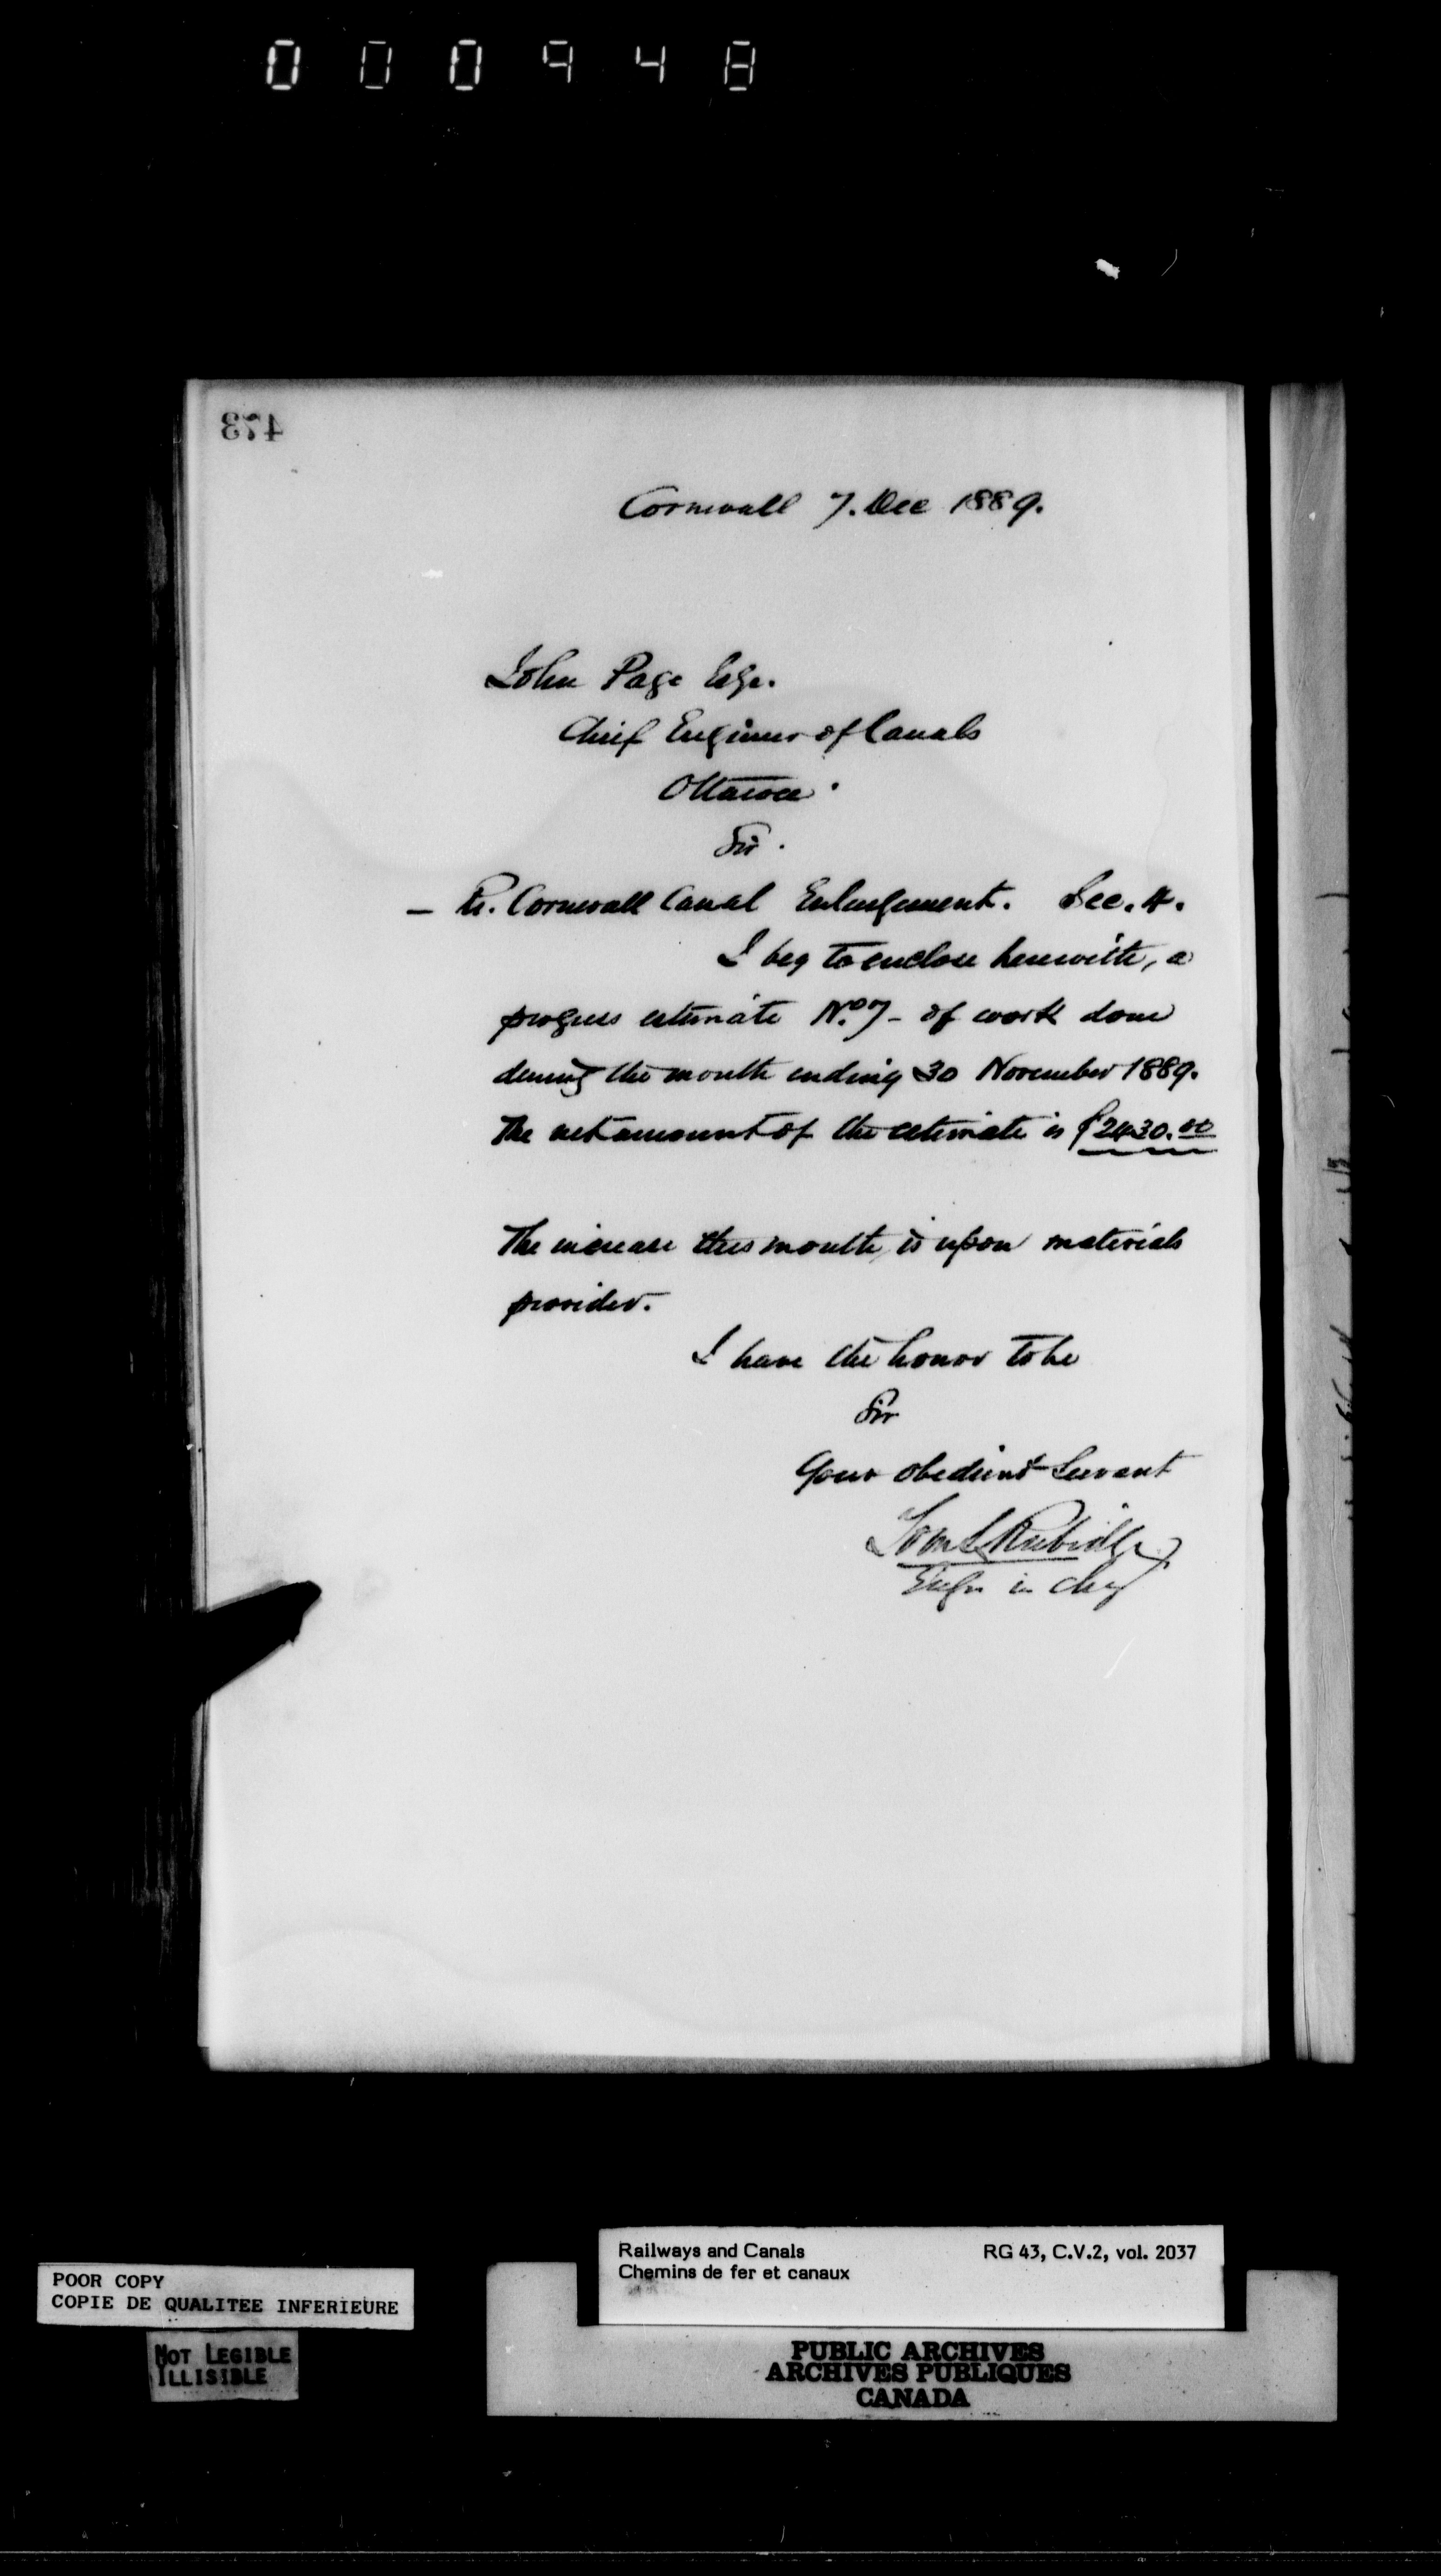 000948
473
Cornwall 7. Dec 1889.
John Page Esqr.
Chief Engineer of Canals
Ottawa.
Sir.
- Re. Cornwall Canal Enlargement. Sec. 4.
I beg to enclose herewith, a
progress estimate No. 7 - of work done
during the month ending 30 November 1889.
The net amount of the estimate is $2430.00
The increase this month, is upon materials
provided.
I have the honor to be
Sir
Your obedient Servant
Tom S Rubidge
Engr in chg
Railways and Canals RG 43, C.V.2, vol. 2037
Chemins de fer et canaux
POOR COPY
COPIE DE QUALITEE INFERIEURE
NOT LEGIBLE
ILLISIBLE
PUBLIC ARCHIVES
ARCHIVES PUBLIQUES
CANADA